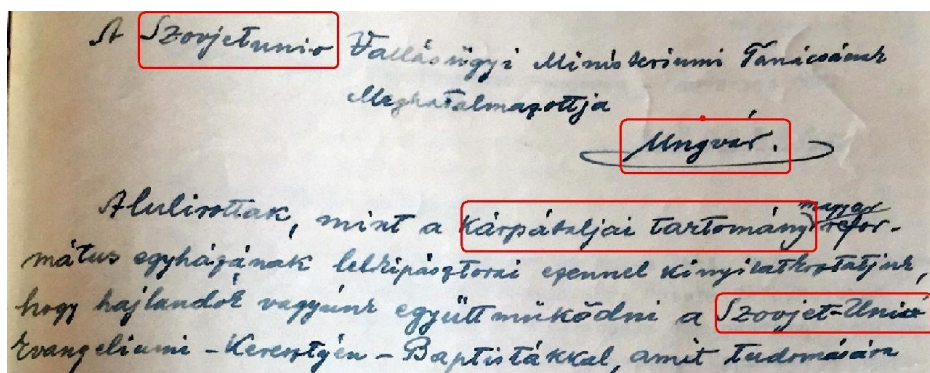 A Szovjetunio Vallásügyi Ministeriumi Tanácsának
Meghatalmazottja
Ungvár.
Alulírottak, mint a Kárpátaljai tartomány magyar refor-
mátus egyházának lelkipásztorai ezennel kinyilatkoztatjuk,
hogy hajlandók vagyunk együttműködni a Szovjet-Unió
Evangeliumi-Keresztyén-Baptistákkal, amit tudomására